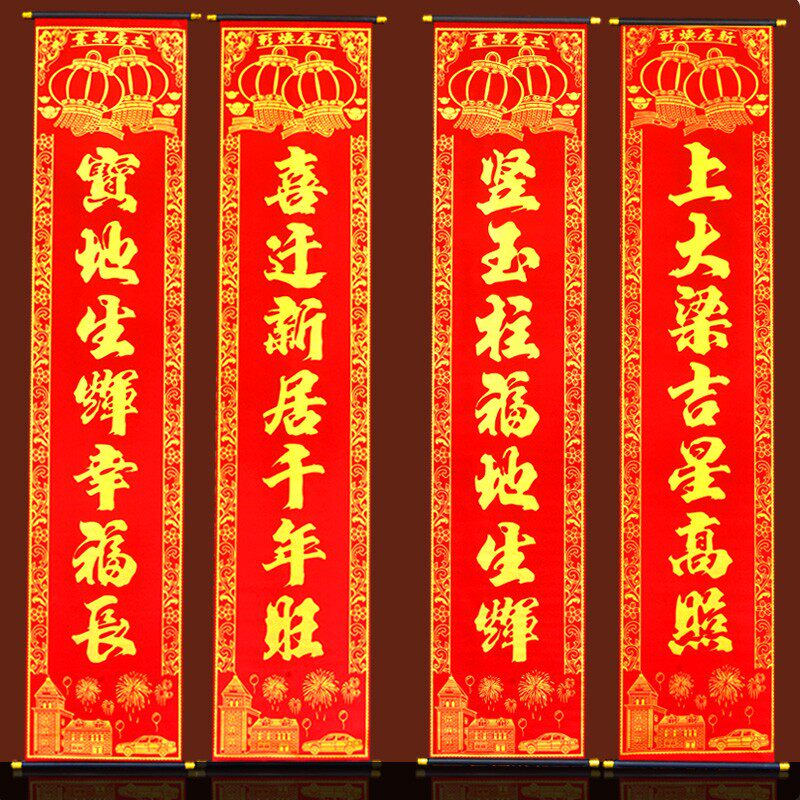 新居焕彩
上大梁吉星高照
安居樂業
竖玉柱福地生輝
新居焕彩
喜迁新居千年旺
安居樂業
寶地生輝幸福長